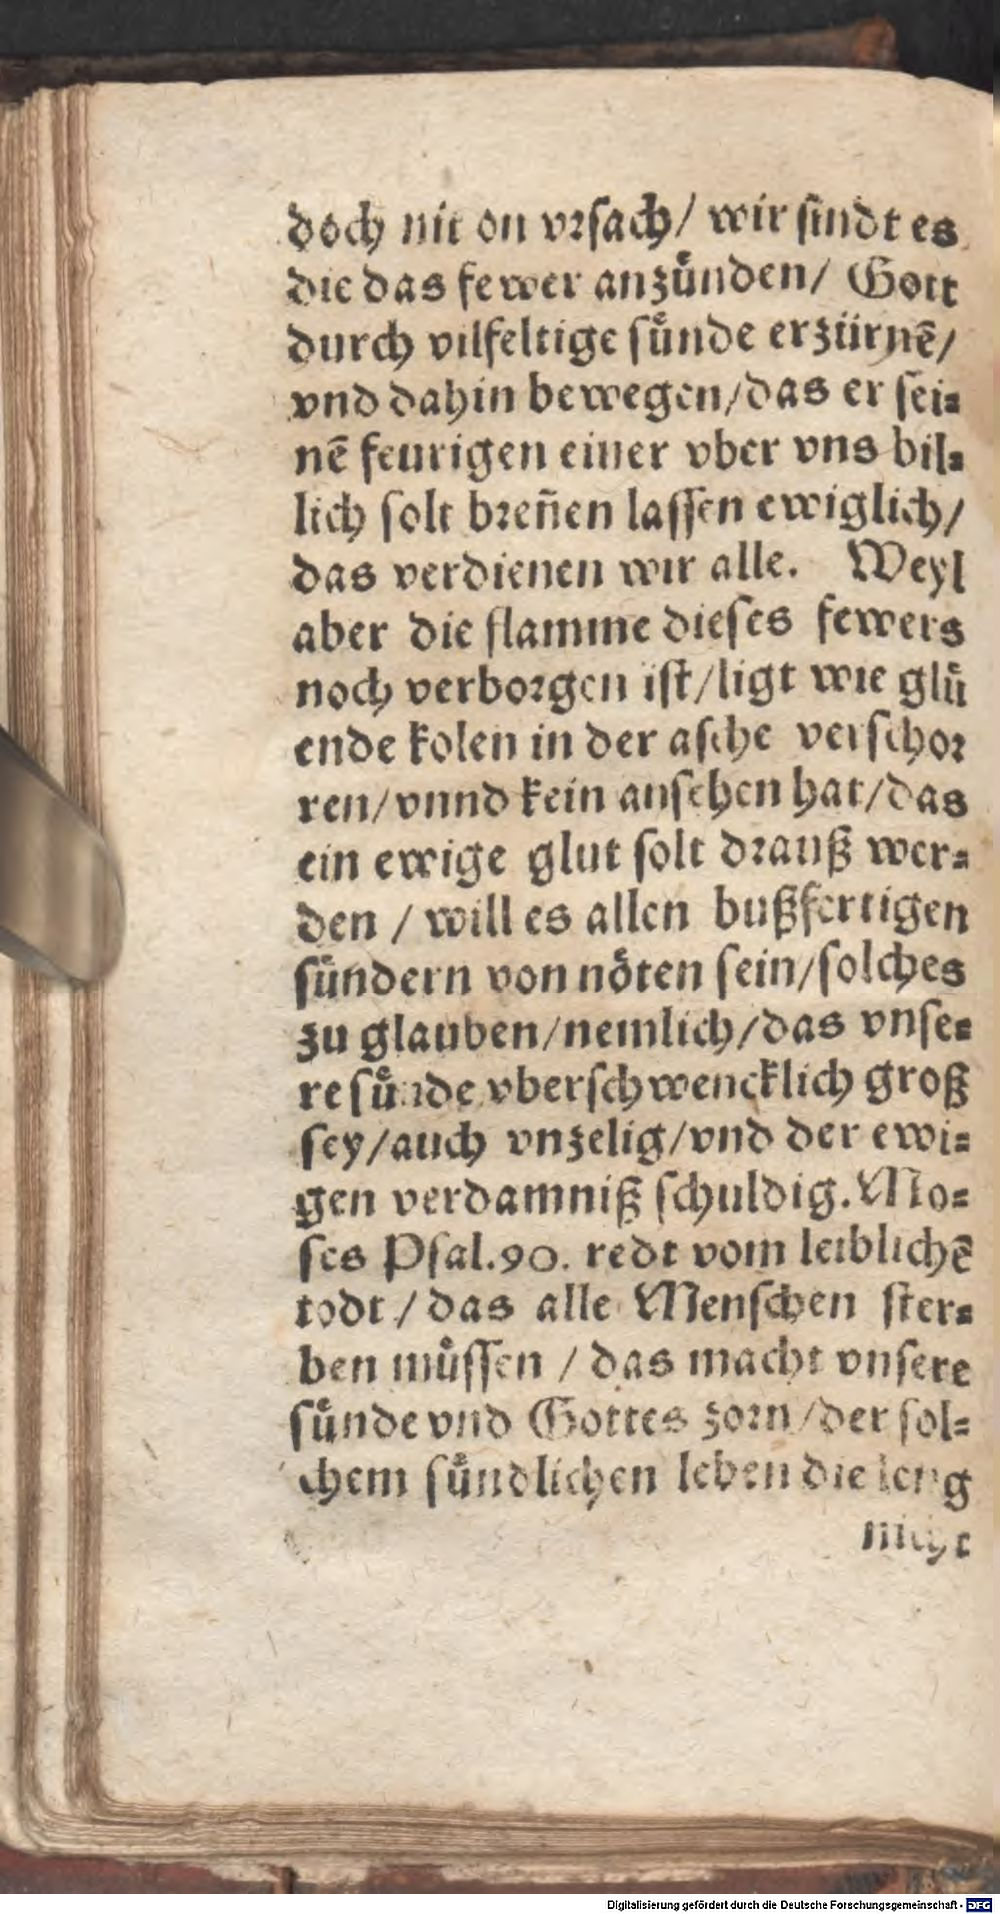 doch nit on vrsach/ wir sindt es
die das fewer anzuͤnden/ Gott
durch vilfeltige suͤnde erzürnē/
vnd dahin bewegen/das er sei=
nē feurigen eiuer vber vns bil=
lich solt breñen lassen ewiglich/
das verdienen wir alle. Weyl
aber die flamme dieses fewers
noch verborgen ist/ligt wie gluͤ
ende kolen in der asche verschor
ren/vnnd kein ansehen hat/das
ein ewige glut solt drauß wer=
den / will es allen bußfertigen
suͤndern von noͤten sein/solches
zu glauben/nemlich/das vnse=
re suͤnde vberschwencklich groß
sey/auch vnzelig/vnd der ewi=
gen verdamniß schuldig. Mo=
ses Psal.90. redt vom leiblichē
todt / das alle Menschen ster=
ben muͤssen / das macht vnsere
suͤnde vnd Gottes zorn/der sol=
chem suͤndlichen leben die leng
nicht
Digitalisierung gefördert durch die Deutsche Forschungsgemeinschaft - DFG